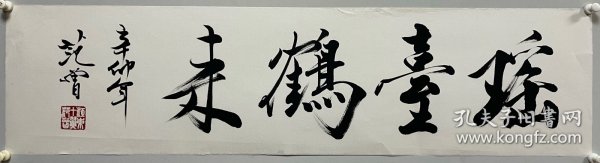 瑶臺鶴来
辛卯年
范曾
孔夫子旧书网
www.kongfz.com